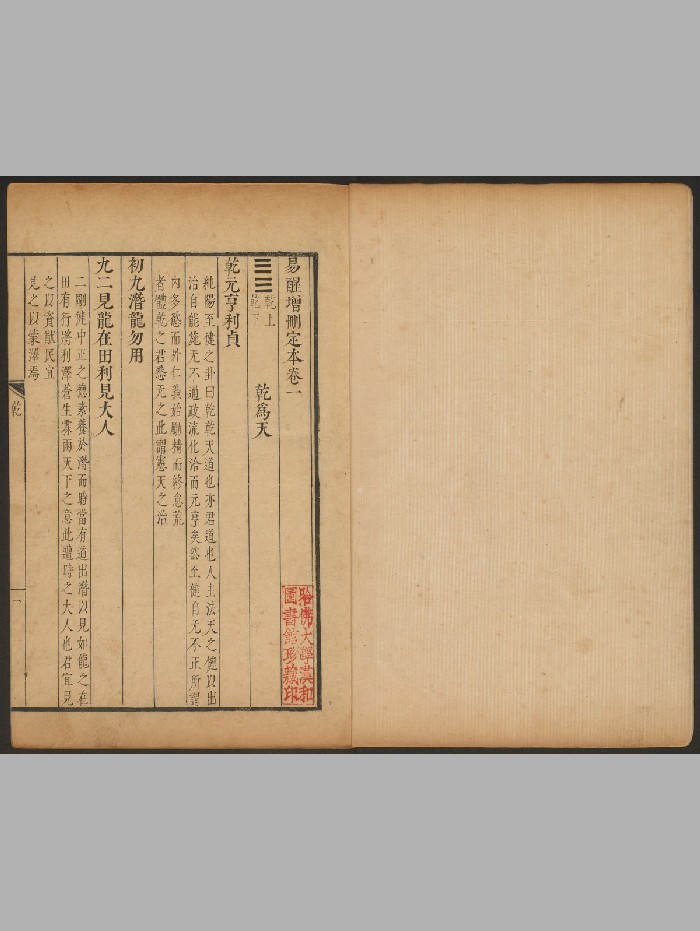 易醒增刪定本卷一
乾上
乾下
乾為天
乾元亨利貞
純陽至健之卦曰乾乾天道也亦君道也人主法天之健以出
治自能純无不適政流化洽而元亨矣然至健自无不正所謂
內多慾而外仁義始勵精而終怠荒
者體乾之君悉无之此謂憲天之治
初九潛龍勿用
九二見龍在田利見大人
二剛健中正之德素養於潛而時當有道出潛以見如龍之在
田有行將利澤蒼生霖雨天下之意此遭時之大人也君宜見
之以資猷民宜
見之以蒙澤焉
乾
一
哈佛大學漢和
圖書館珍藏印